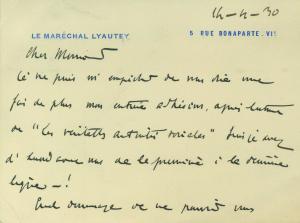 14-4-30
LE MARÉCHAL LYAUTEY
5 RUE BONAPARTE. VIᵉ
Cher Monsieur
Je ne puis m'empêcher de vous dire une
fois de plus mon entière adhésion, après lecture
de "Les véritables autorités sociales"
d'accord avec vous de la première à la dernière
ligne -!
Quel dommage de ne pouvoir vous